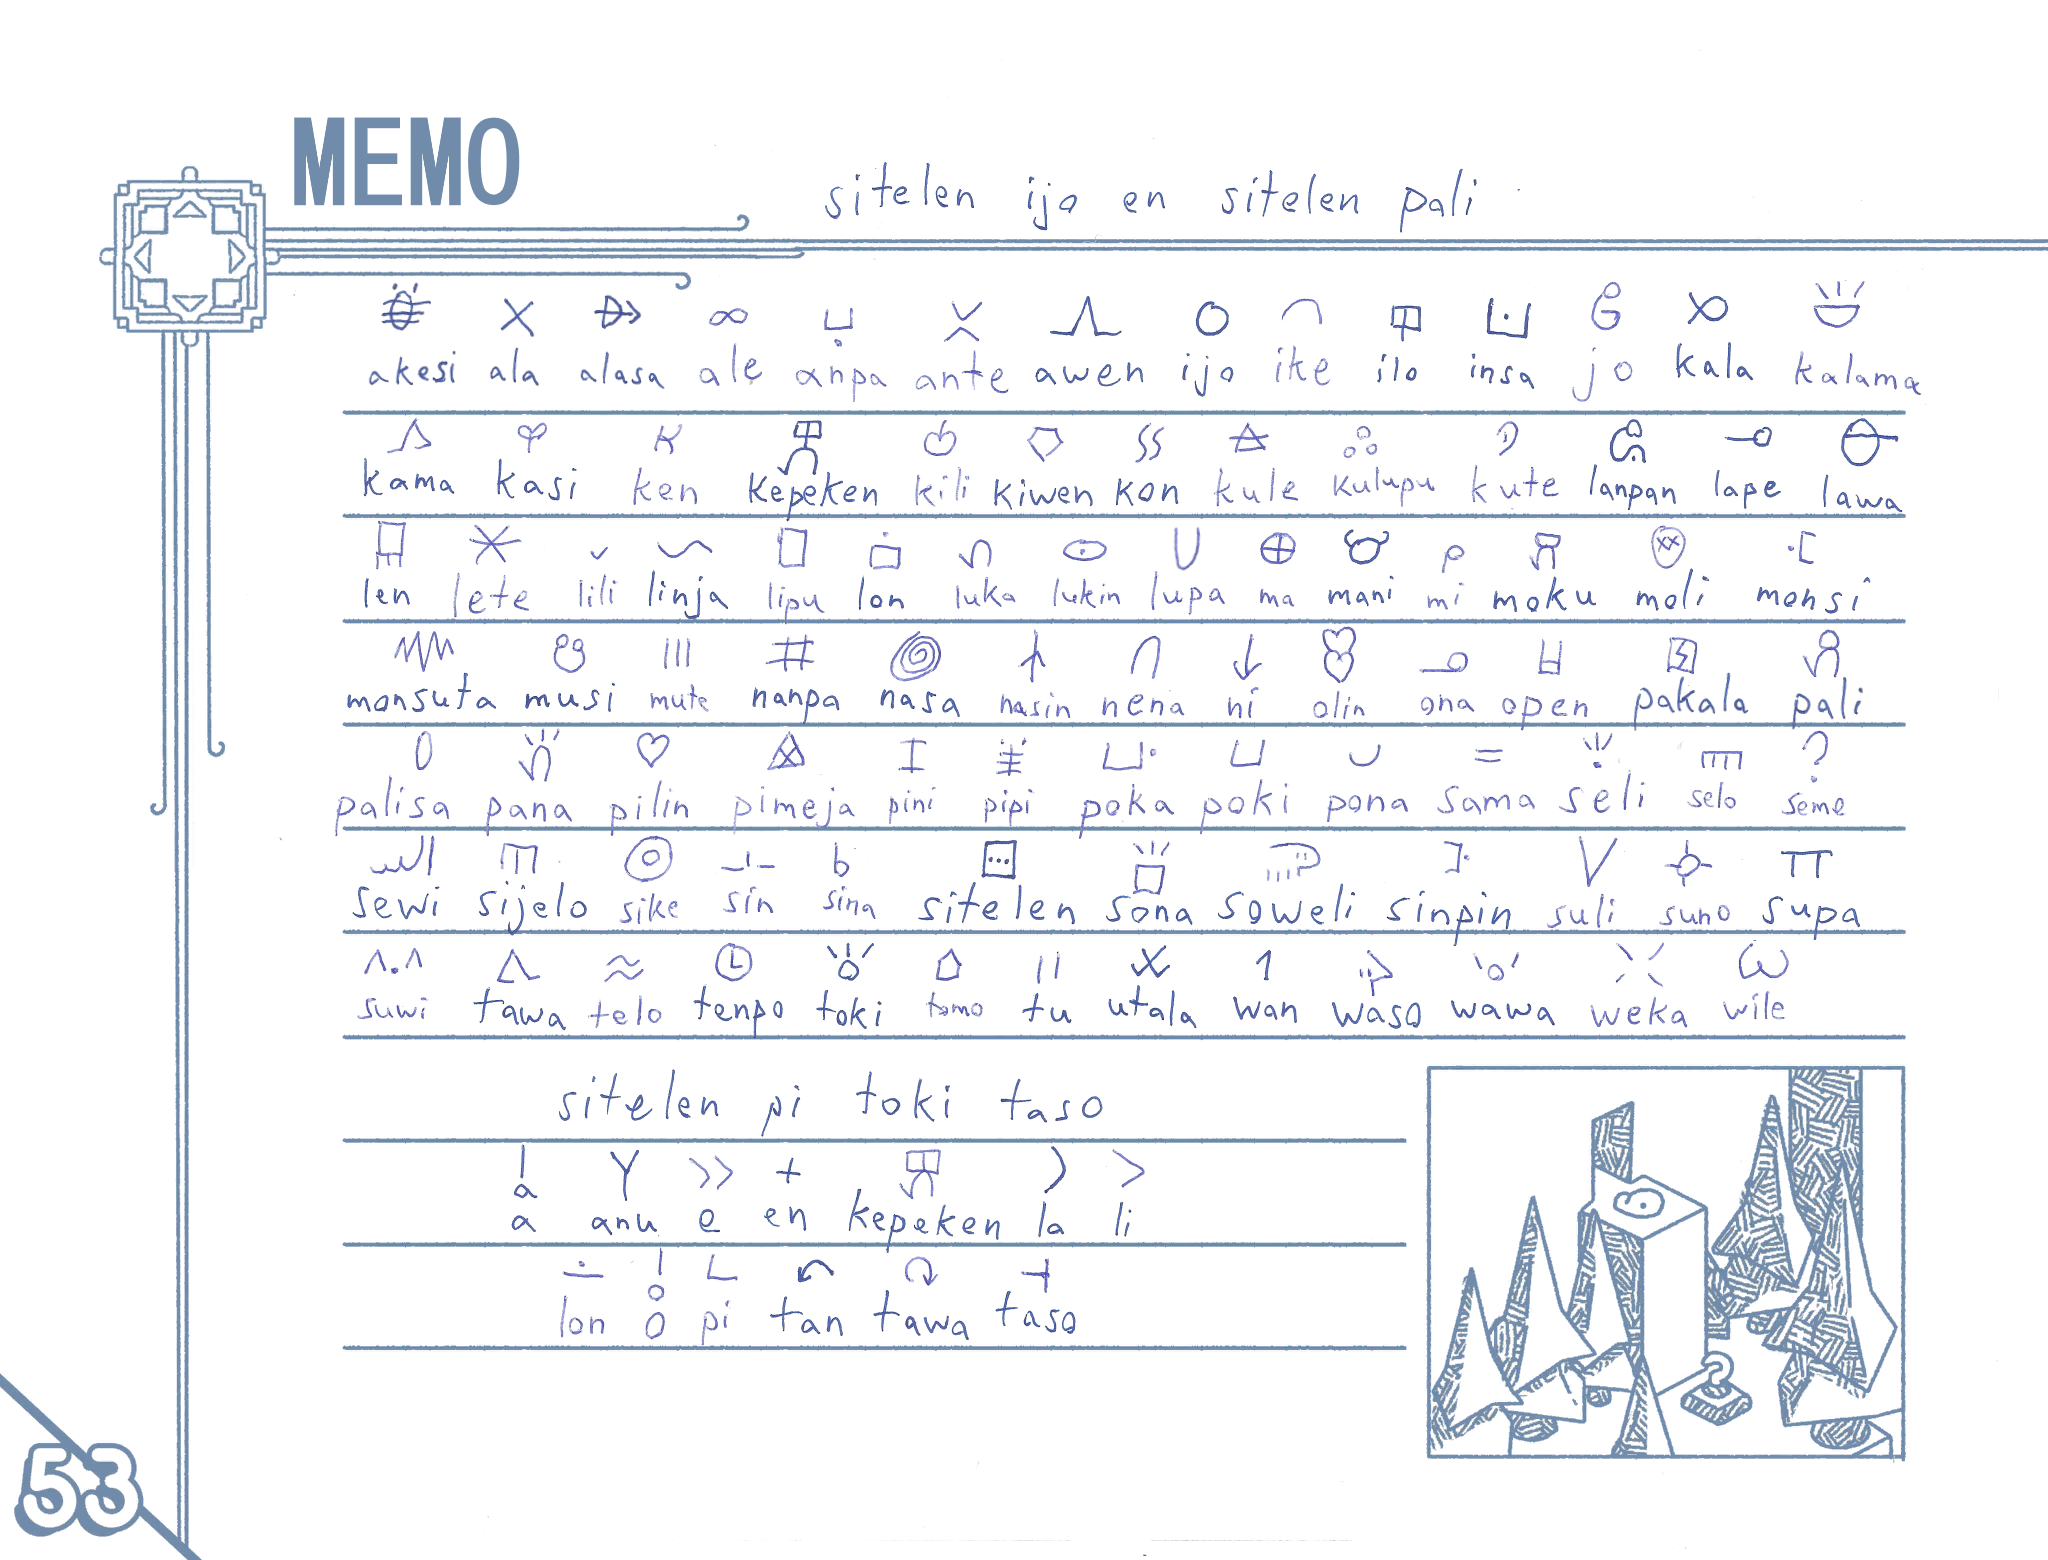 MEMO
sitelen ijo en sitelen pali
akesi ala alasa ale anpa ante awen ijo ike ilo insa jo kala kalama
kama kasi ken kepeken kili kiwen kon kule kulupu kute lanpan lape lawa
len lete lili linja lipu lon luka lukin lupa ma mani mi moku moli monsi
monsuta musi mute nanpa nasa nasin nena ni olin ona open pakala pali
palisa pana pilin pimeja pini pipi poka poki pona sama seli selo seme
sewi sijelo sike sin sina sitelen sona soweli sinpin suli suno supa
suwi tawa telo tenpo toki tomo tu utala wan waso wawa weka wile
sitelen pi toki taso
a anu e en kepeken la li
lon o pi tan tawa taso
53